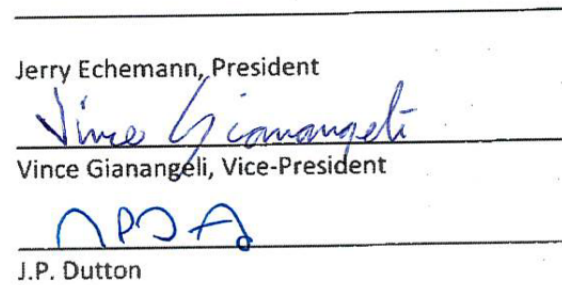 Jerry Echemann, President
Vince Gianangeli
Vince Gianangeli, Vice-President
J.P. Dutton